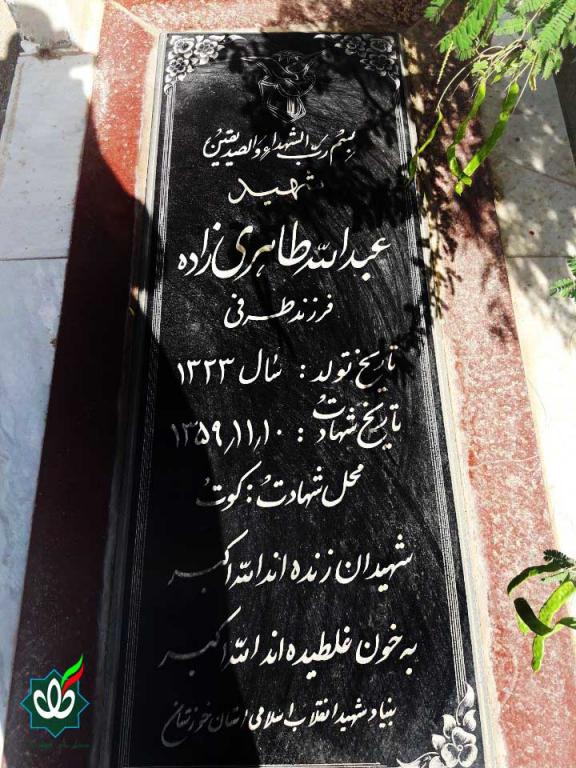 بسم رب الشهداء والصدیقین
شهید
عبدالله طاهری زاده
فرزند طرفی
تاریخ تولد : سال ۱۳۲۳
تاریخ شهادت : ۱۳۵۹٫۱۱٫۱۰
محل شهادت : کوت
شهیدان زنده اند الله اکبر
به خون غلطیده اند الله اکبر
بنیاد شهید انقلاب اسلامی استان خوزستان